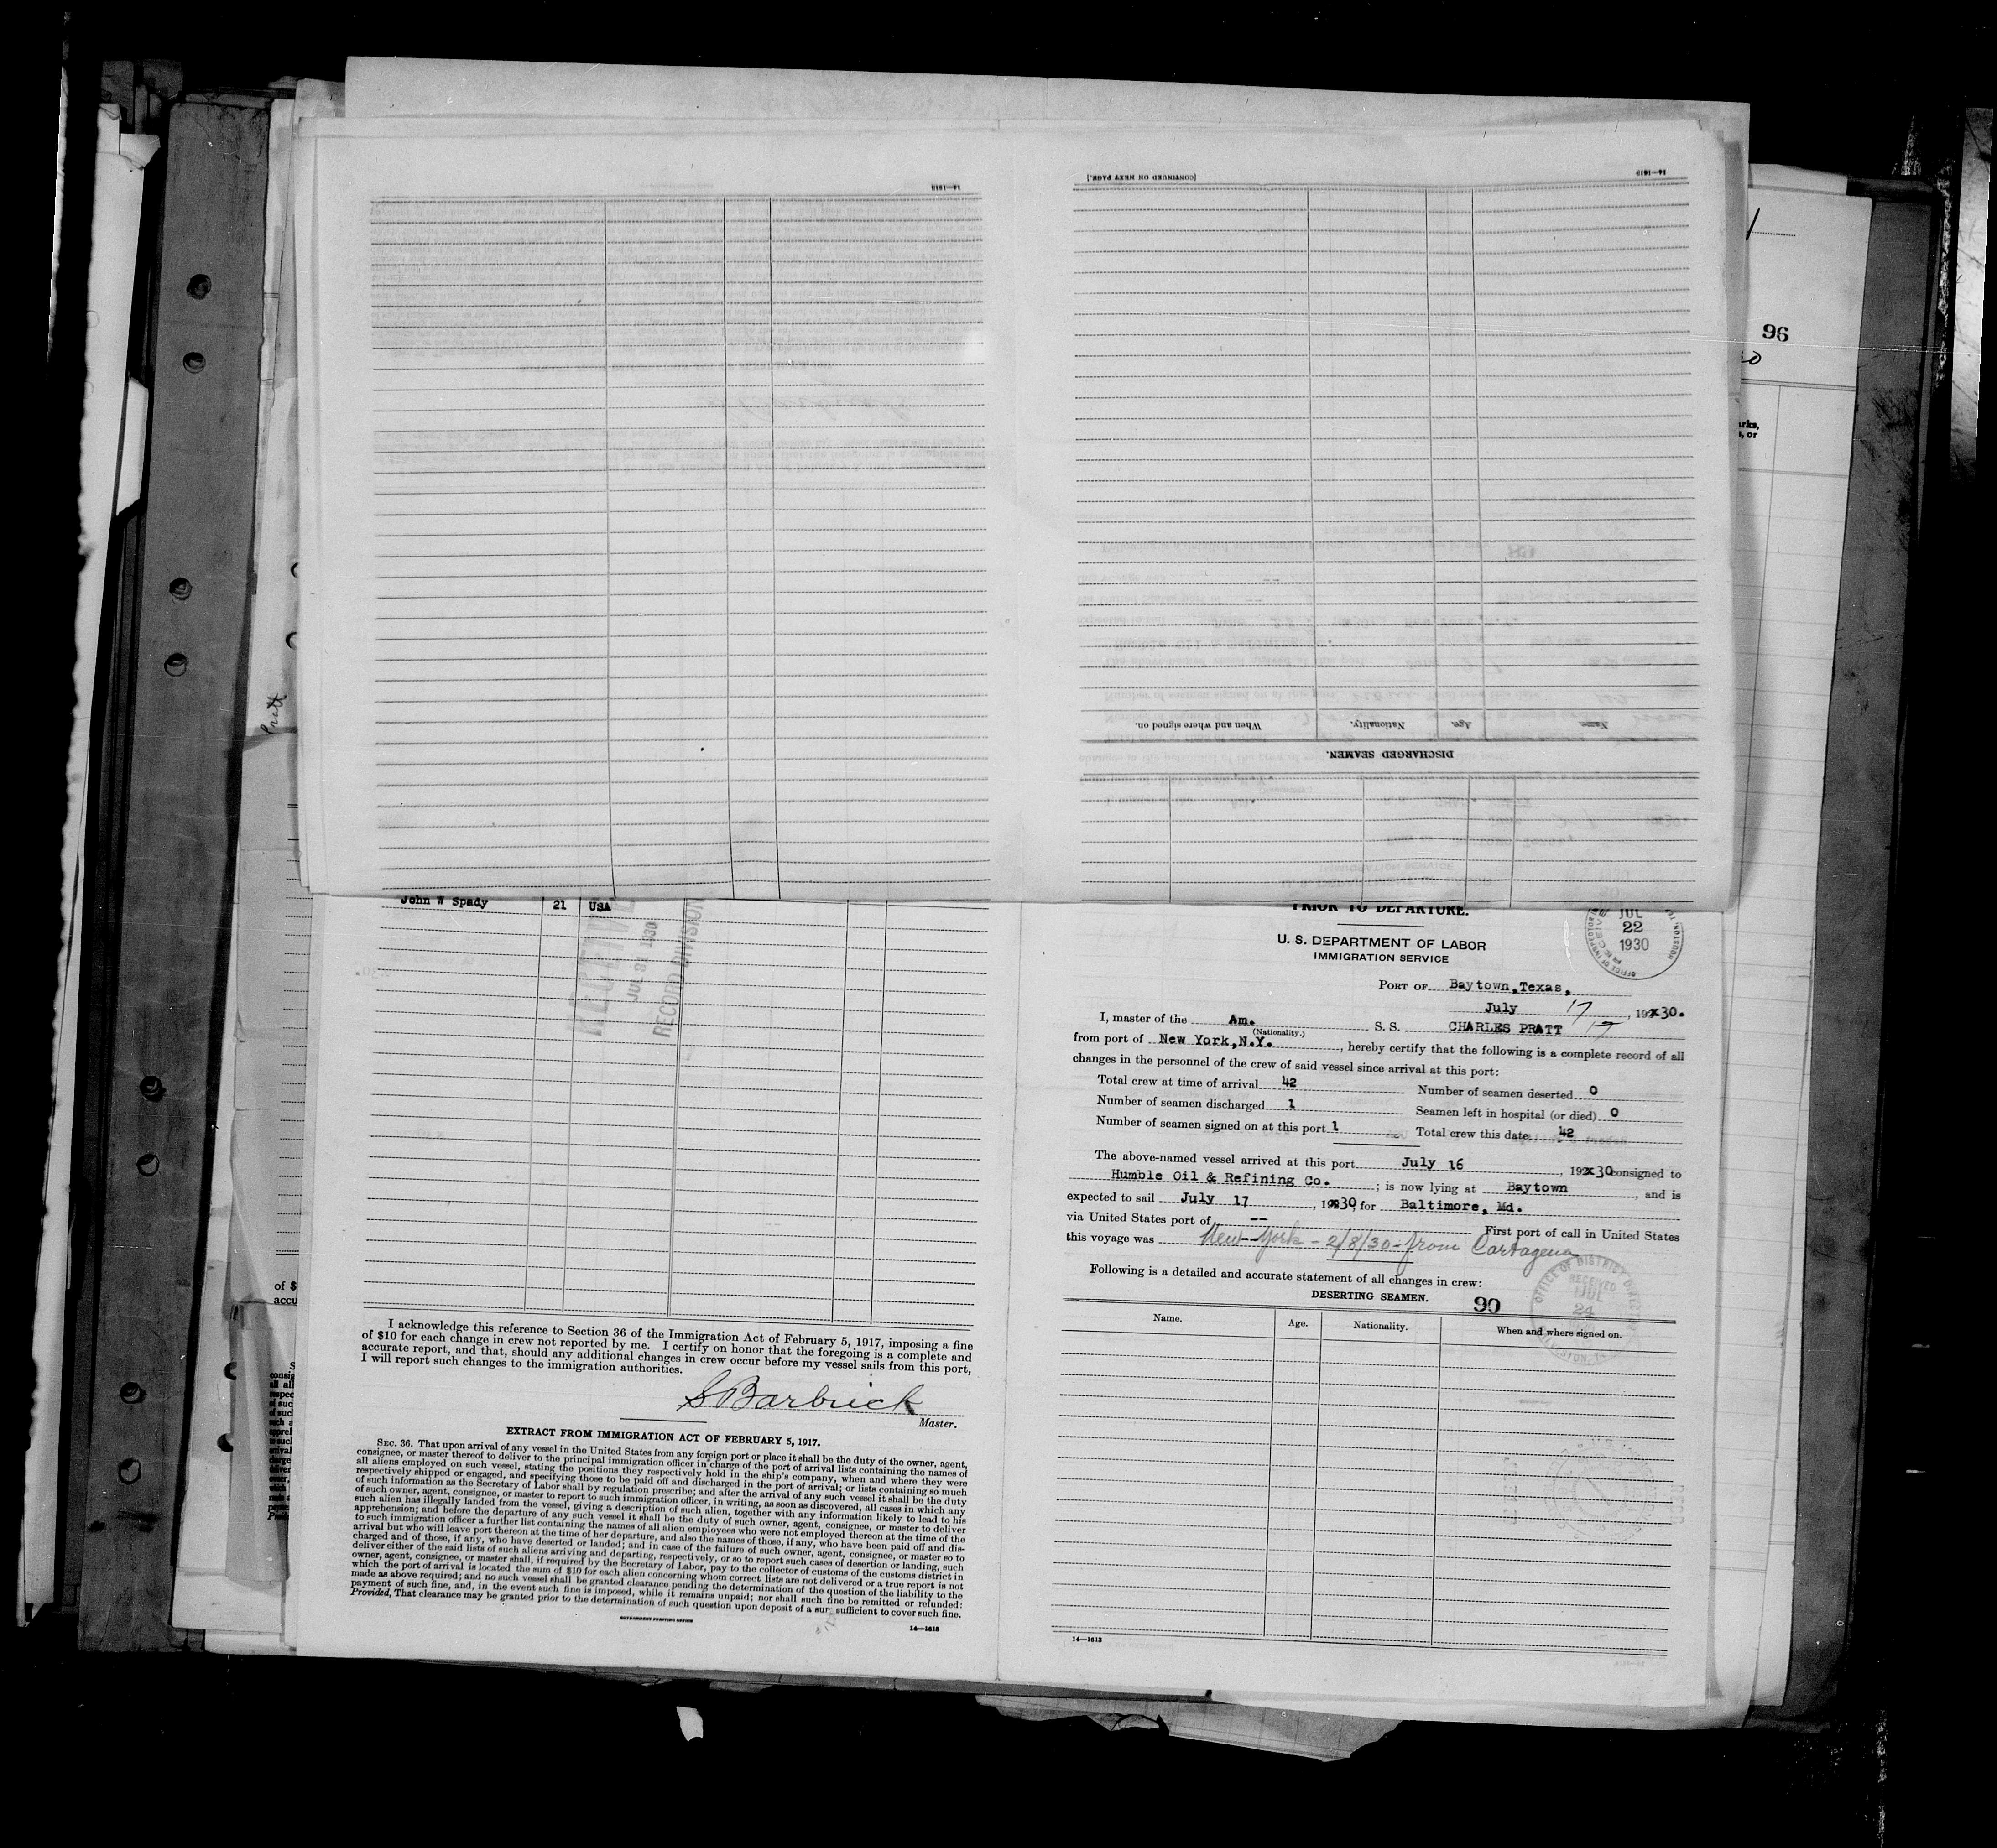 14—1613
[CONTINUED ON NEXT PAGE.]
14—1613
Name
Age.
Nationality.
When and where signed on.
DISCHARGED SEAMEN.
96
Pratt
John W Spady 21 USA
JUL 31 1930
RECORD DIVISION
I acknowledge this reference to Section 36 of the Immigration Act of February 5, 1917, imposing a fine
of $10 for each change in crew not reported by me. I certify on honor that the foregoing is a complete and
accurate report, and that, should any additional changes in crew occur before my vessel sails from this port,
I will report such changes to the immigration authorities.
S Barbrick
Master.
EXTRACT FROM IMMIGRATION ACT OF FEBRUARY 5, 1917.
SEC. 36. That upon arrival of any vessel in the United States from any foreign port or place it shall be the duty of the owner, agent,
consignee, or master thereof to deliver to the principal immigration officer in charge of the port of arrival lists containing the names of
all aliens employed on such vessel, stating the positions they respectively hold in the ship's company, when and where they were
respectively shipped or engaged, and specifying those to be paid off and discharged in the port of arrival; or lists containing so much
of such information as the Secretary of Labor shall by regulation prescribe; and after the arrival of any such vessel it shall be the duty
of such owner, agent, consignee, or master to report to such immigration officer, in writing, as soon as discovered, all cases in which any
such alien has illegally landed from the vessel, giving a description of such alien, together with any information likely to lead to his
apprehension; and before the departure of any such vessel it shall be the duty of such owner, agent, consignee, or master to deliver
to such immigration officer a further list containing the names of all alien employees who were not employed thereon at the time of the
arrival but who will leave port thereon at the time of her departure, and also the names of those, if any, who have been paid off and dis-
charged and of those, if any, who have deserted or landed; and in case of the failure of such owner, agent, consignee, or master so to
deliver either of the said lists of such aliens arriving and departing, respectively, or so to report such cases of desertion or landing, such
owner, agent, consignee, or master shall, if required by the Secretary of Labor, pay to the collector of customs of the customs district in
which the port of arrival is located the sum of $10 for each alien concerning whom correct lists are not delivered or a true report is not
made as above required; and no such vessel shall be granted clearance pending the determination of the question of the liability to the
payment of such fine, and, in the event such fine is imposed, while it remains unpaid; nor shall such fine be remitted or refunded:
Provided, That clearance may be granted prior to the determination of such question upon deposit of a sum sufficient to cover such fine.
GOVERNMENT PRINTING OFFICE
14—1613
PRIOR TO DEPARTURE.
U. S. DEPARTMENT OF LABOR
IMMIGRATION SERVICE
JUL
22
1930
PORT OF Baytown,Texas,
July 17, 192x30.
I, master of the Am. S. S. CHARLES PRATT 17
(Nationality.)
from port of New York,N.Y., hereby certify that the following is a complete record of all
changes in the personnel of the crew of said vessel since arrival at this port:
Total crew at time of arrival 42 Number of seamen deserted 0
Number of seamen discharged 1 Seamen left in hospital (or died) 0
Number of seamen signed on at this port 1 Total crew this date 42
The above-named vessel arrived at this port July 16, 192x30 consigned to
Humble Oil & Refining Co.; is now lying at Baytown, and is
expected to sail July 17, 19x30, for Baltimore, Md.
via United States port of -- First port of call in United States
this voyage was New York - 2/8/30 - from Cartagena
Following is a detailed and accurate statement of all changes in crew:
DESERTING SEAMEN. 90
OFFICE OF DISTRICT DIRECTOR
RECEIVED
JUL
24
Name. Age. Nationality. When and where signed on.
14—1613